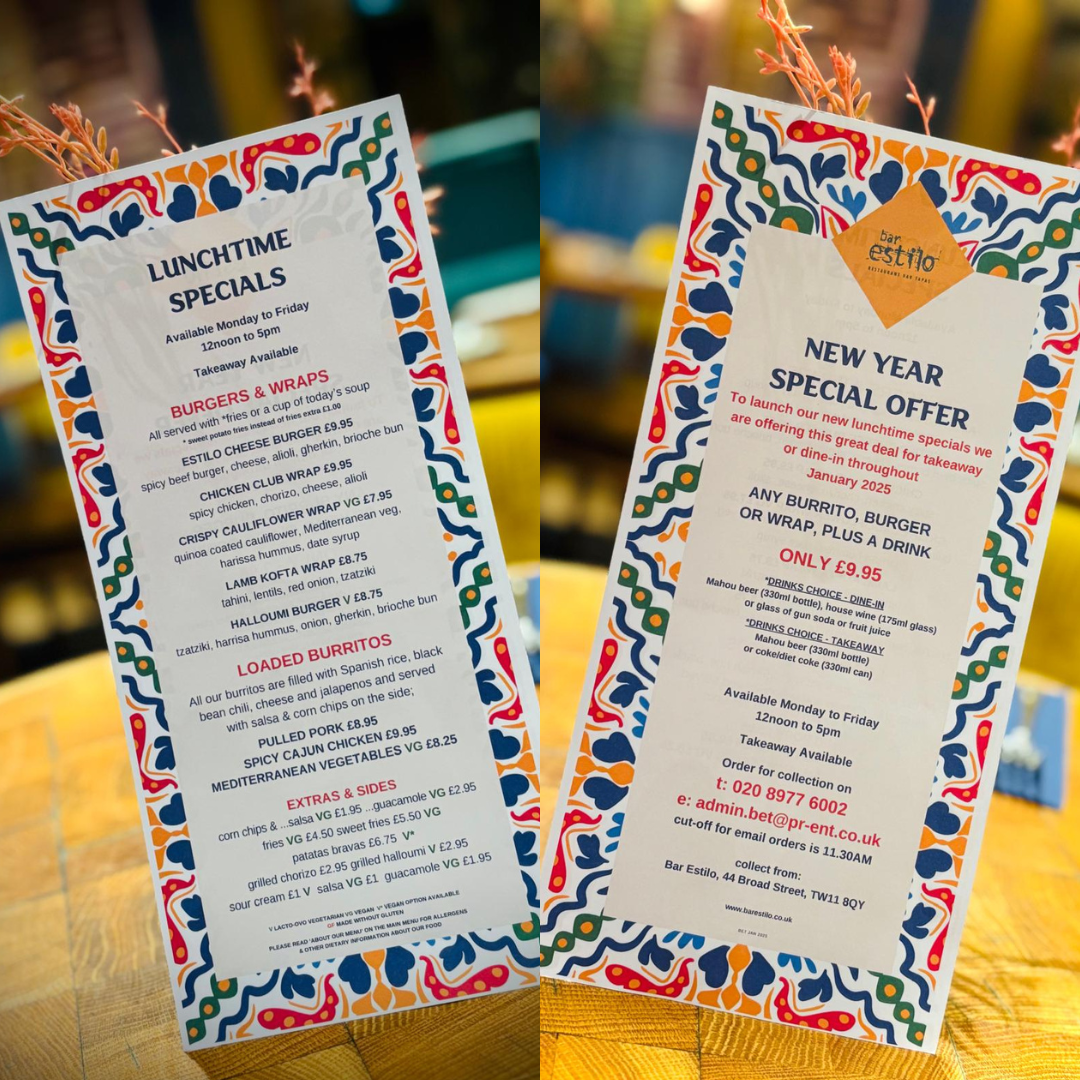 LUNCHTIME
SPECIALS
Available Monday to Friday
12noon to 5pm
Takeaway Available
BURGERS & WRAPS
All served with *fries or a cup of today's soup
* sweet potato fries instead of fries extra £1.00
ESTILO CHEESE BURGER £9.95
spicy beef burger, cheese, alioli, gherkin, brioche bun
CHICKEN CLUB WRAP £9.95
spicy chicken, chorizo, cheese, alioli
CRISPY CAULIFLOWER WRAP VG £7.95
quinoa coated cauliflower, Mediterranean veg,
harissa hummus, date syrup
LAMB KOFTA WRAP £8.75
tahini, lentils, red onion, tzatziki
HALLOUMI BURGER V £8.75
tzatziki, harrisa hummus, onion, gherkin, brioche bun
LOADED BURRITOS
All our burritos are filled with Spanish rice, black
bean chili, cheese and jalapenos and served
with salsa & corn chips on the side;
PULLED PORK £8.95
SPICY CAJUN CHICKEN £9.95
MEDITERRANEAN VEGETABLES VG £8.25
EXTRAS & SIDES
corn chips & ...salsa VG £1.95 ...guacamole VG £2.95
fries VG £4.50 sweet fries £5.50 VG
patatas bravas £6.75 V*
grilled chorizo £2.95 grilled halloumi V £2.95
sour cream £1 V salsa VG £1 guacamole VG £1.95
V LACTO-OVO VEGETARIAN VG VEGAN V* VEGAN OPTION AVAILABLE
GF MADE WITHOUT GLUTEN
PLEASE READ 'ABOUT OUR MENU' ON THE MAIN MENU FOR ALLERGENS
& OTHER DIETARY INFORMATION ABOUT OUR FOOD
bar
estilo
RESTAURANT BAR TAPAS
NEW YEAR
SPECIAL OFFER
To launch our new lunchtime specials we
are offering this great deal for takeaway
or dine-in throughout
January 2025
ANY BURRITO, BURGER
OR WRAP, PLUS A DRINK
ONLY £9.95
*DRINKS CHOICE - DINE-IN
Mahou beer (330ml bottle), house wine (175ml glass)
or glass of gun soda or fruit juice
*DRINKS CHOICE - TAKEAWAY
Mahou beer (330ml bottle)
or coke/diet coke (330ml can)
Available Monday to Friday
12noon to 5pm
Takeaway Available
Order for collection on
t: 020 8977 6002
e: admin.bet@pr-ent.co.uk
cut-off for email orders is 11.30AM
collect from:
Bar Estilo, 44 Broad Street, TW11 8QY
www.barestilo.co.uk
JAN 2025